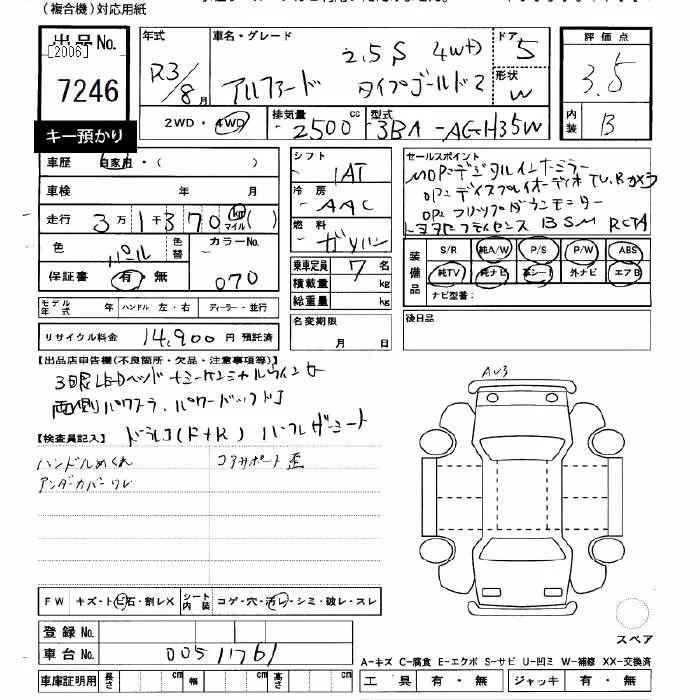 （複合機）対応用紙
出品No. [2006] 7246
キー預かり
年式 R3/8月
車名・グレード アルファード 2.5S 4WD タイプゴールド2
ドア 5
形状 W
評価点 3.5
内装 B
2WD・4WD
排気量 2500 cc
型式 3BA-AGH35W
車歴 自家用・( )
シフト 1AT
セールスポイント
MOPデジタルインナーミラー
OPディスプレイオーディオ TV,Bカメラ
OPフリップダウンモニター
BSM RCTA
車検 年 月
冷房 AAC
走行 3万1千370 km マイル ( )
燃料 ガソリン
色 パール
色替
カラーNo. 070
乗車定員 7 名
積載量 kg
総重量 kg
保証書 有・無
装備品
S/R 純A/W P/S P/W ABS
純TV 純ナビ 革シート 外ナビ エアB
ナビ型番：
モデル年式 年 ハンドル 左・右 ディーラー・並行
名変期限 月 日
後日品
リサイクル料金 14,900 円 預託済
【出品店申告欄(不良箇所・欠品・注意事項等)】
3眼LEDヘッド
両側パワスラ、パワーバックドア
【検査員記入】
ドラレコ(F+R) ハーフレザーシート
ハンドルめくれ
コアサポート歪
アンダーカバーワレ
AU3
FW キズ・トビ石・割レX
シート内装 コゲ・穴・汚レ・シミ・破レ・スレ
スペア
登録No.
車台No. 0051761
A-キズ C-腐食 E-エクボ S-サビ U-凹ミ W-補修 XX-交換済
車庫証明用 長さ cm 幅 cm 高さ cm
工具 有・無 ジャッキ 有・無